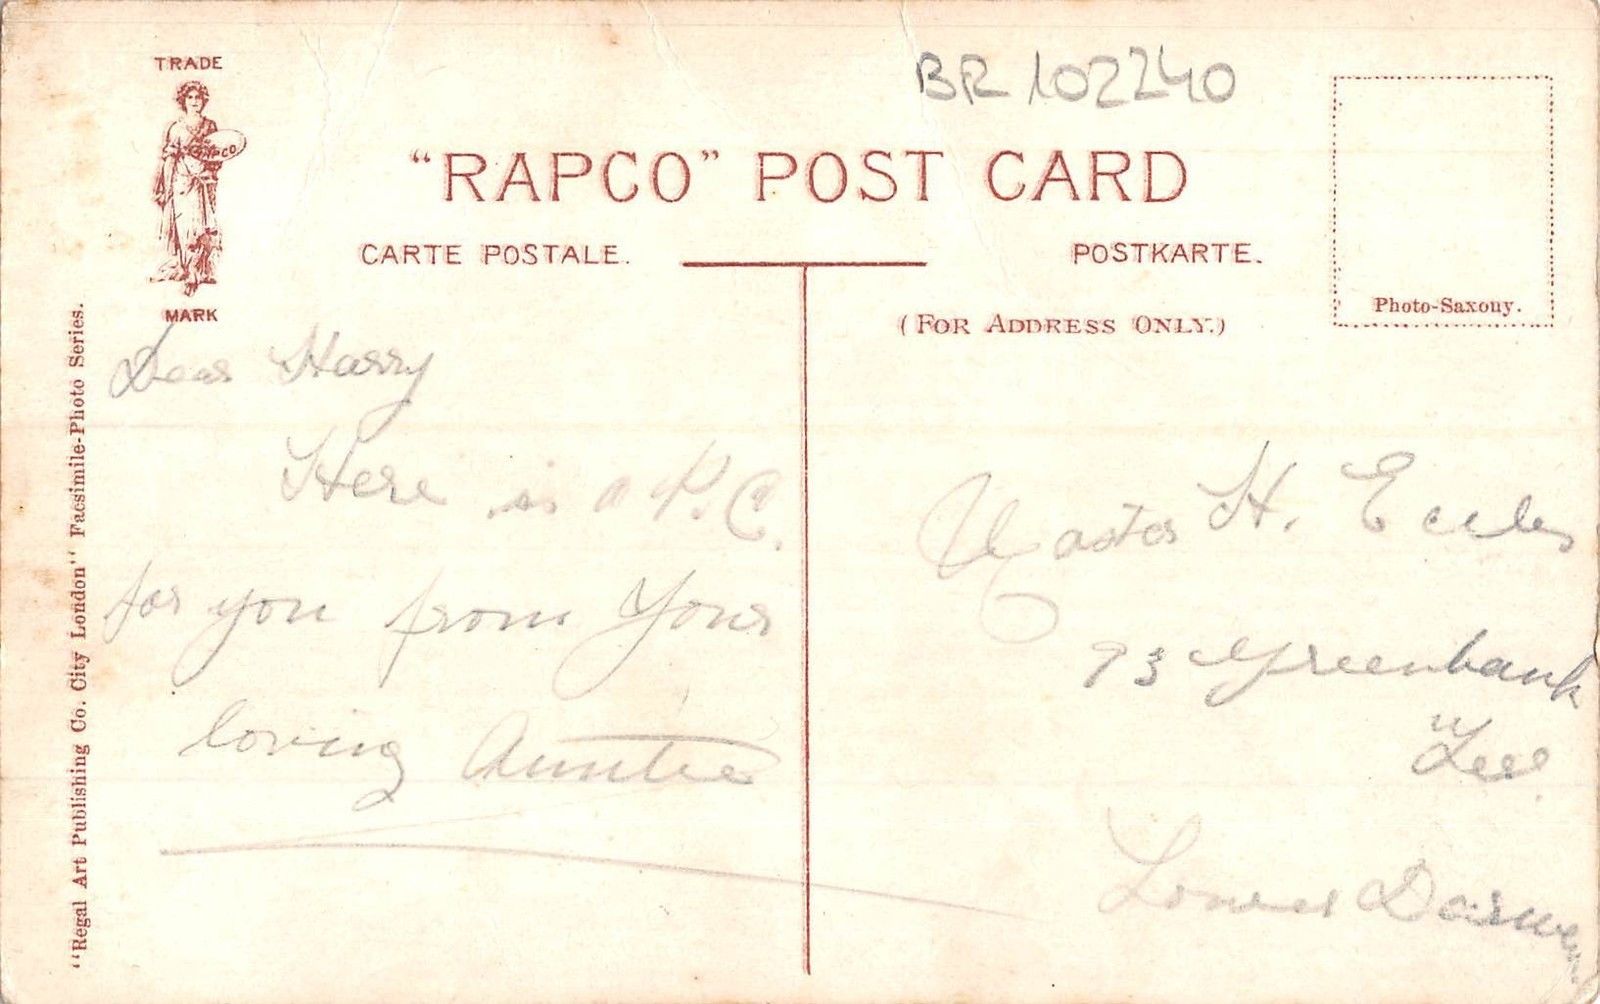 BR 102240
TRADE
RAPCO
MARK
"RAPCO" POST CARD
CARTE POSTALE.
POSTKARTE.
(FOR ADDRESS ONLY.)
Photo-Saxony.
"Regal Art Publishing Co. City London" Facsimile-Photo Series.
Dear Harry
Here is a P.C.
for you from Your
loving Auntie
Master H. Eccles
93 Greenbank
Tce
Lower Darwen